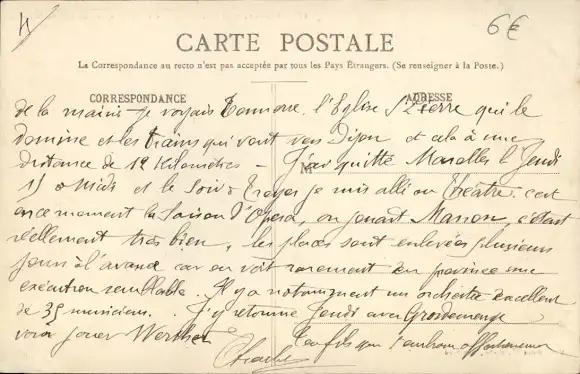 4
6€
CARTE POSTALE
La Correspondance au recto n'est pas acceptée par tous les Pays Étrangers. (Se renseigner à la Poste.)
CORRESPONDANCE
ADRESSE
de la main - je voyais Tonnerre, l'Eglise St Pierre qui le
domine et les trains qui vont vers Dijon et cela à une
distance de 12 kilomètres - J'ai quitté Marolles le Jeudi
M
15 à Midi et le Soir à Troyes je suis allé au théâtre. c'est
en ce moment la Saison d'Opéra, on jouait Manon, c'était
réellement très bien, les places sont enlevées plusieurs
jours à l'avance car on voit rarement en province une
exécution semblable. Il y a notamment un orchestre excellent
de 35 musiciens. J'y retourne Jeudi avec Grosdemenge
voir jouer Werther
Ton fils qui t'embrasse affectueusement
Charles